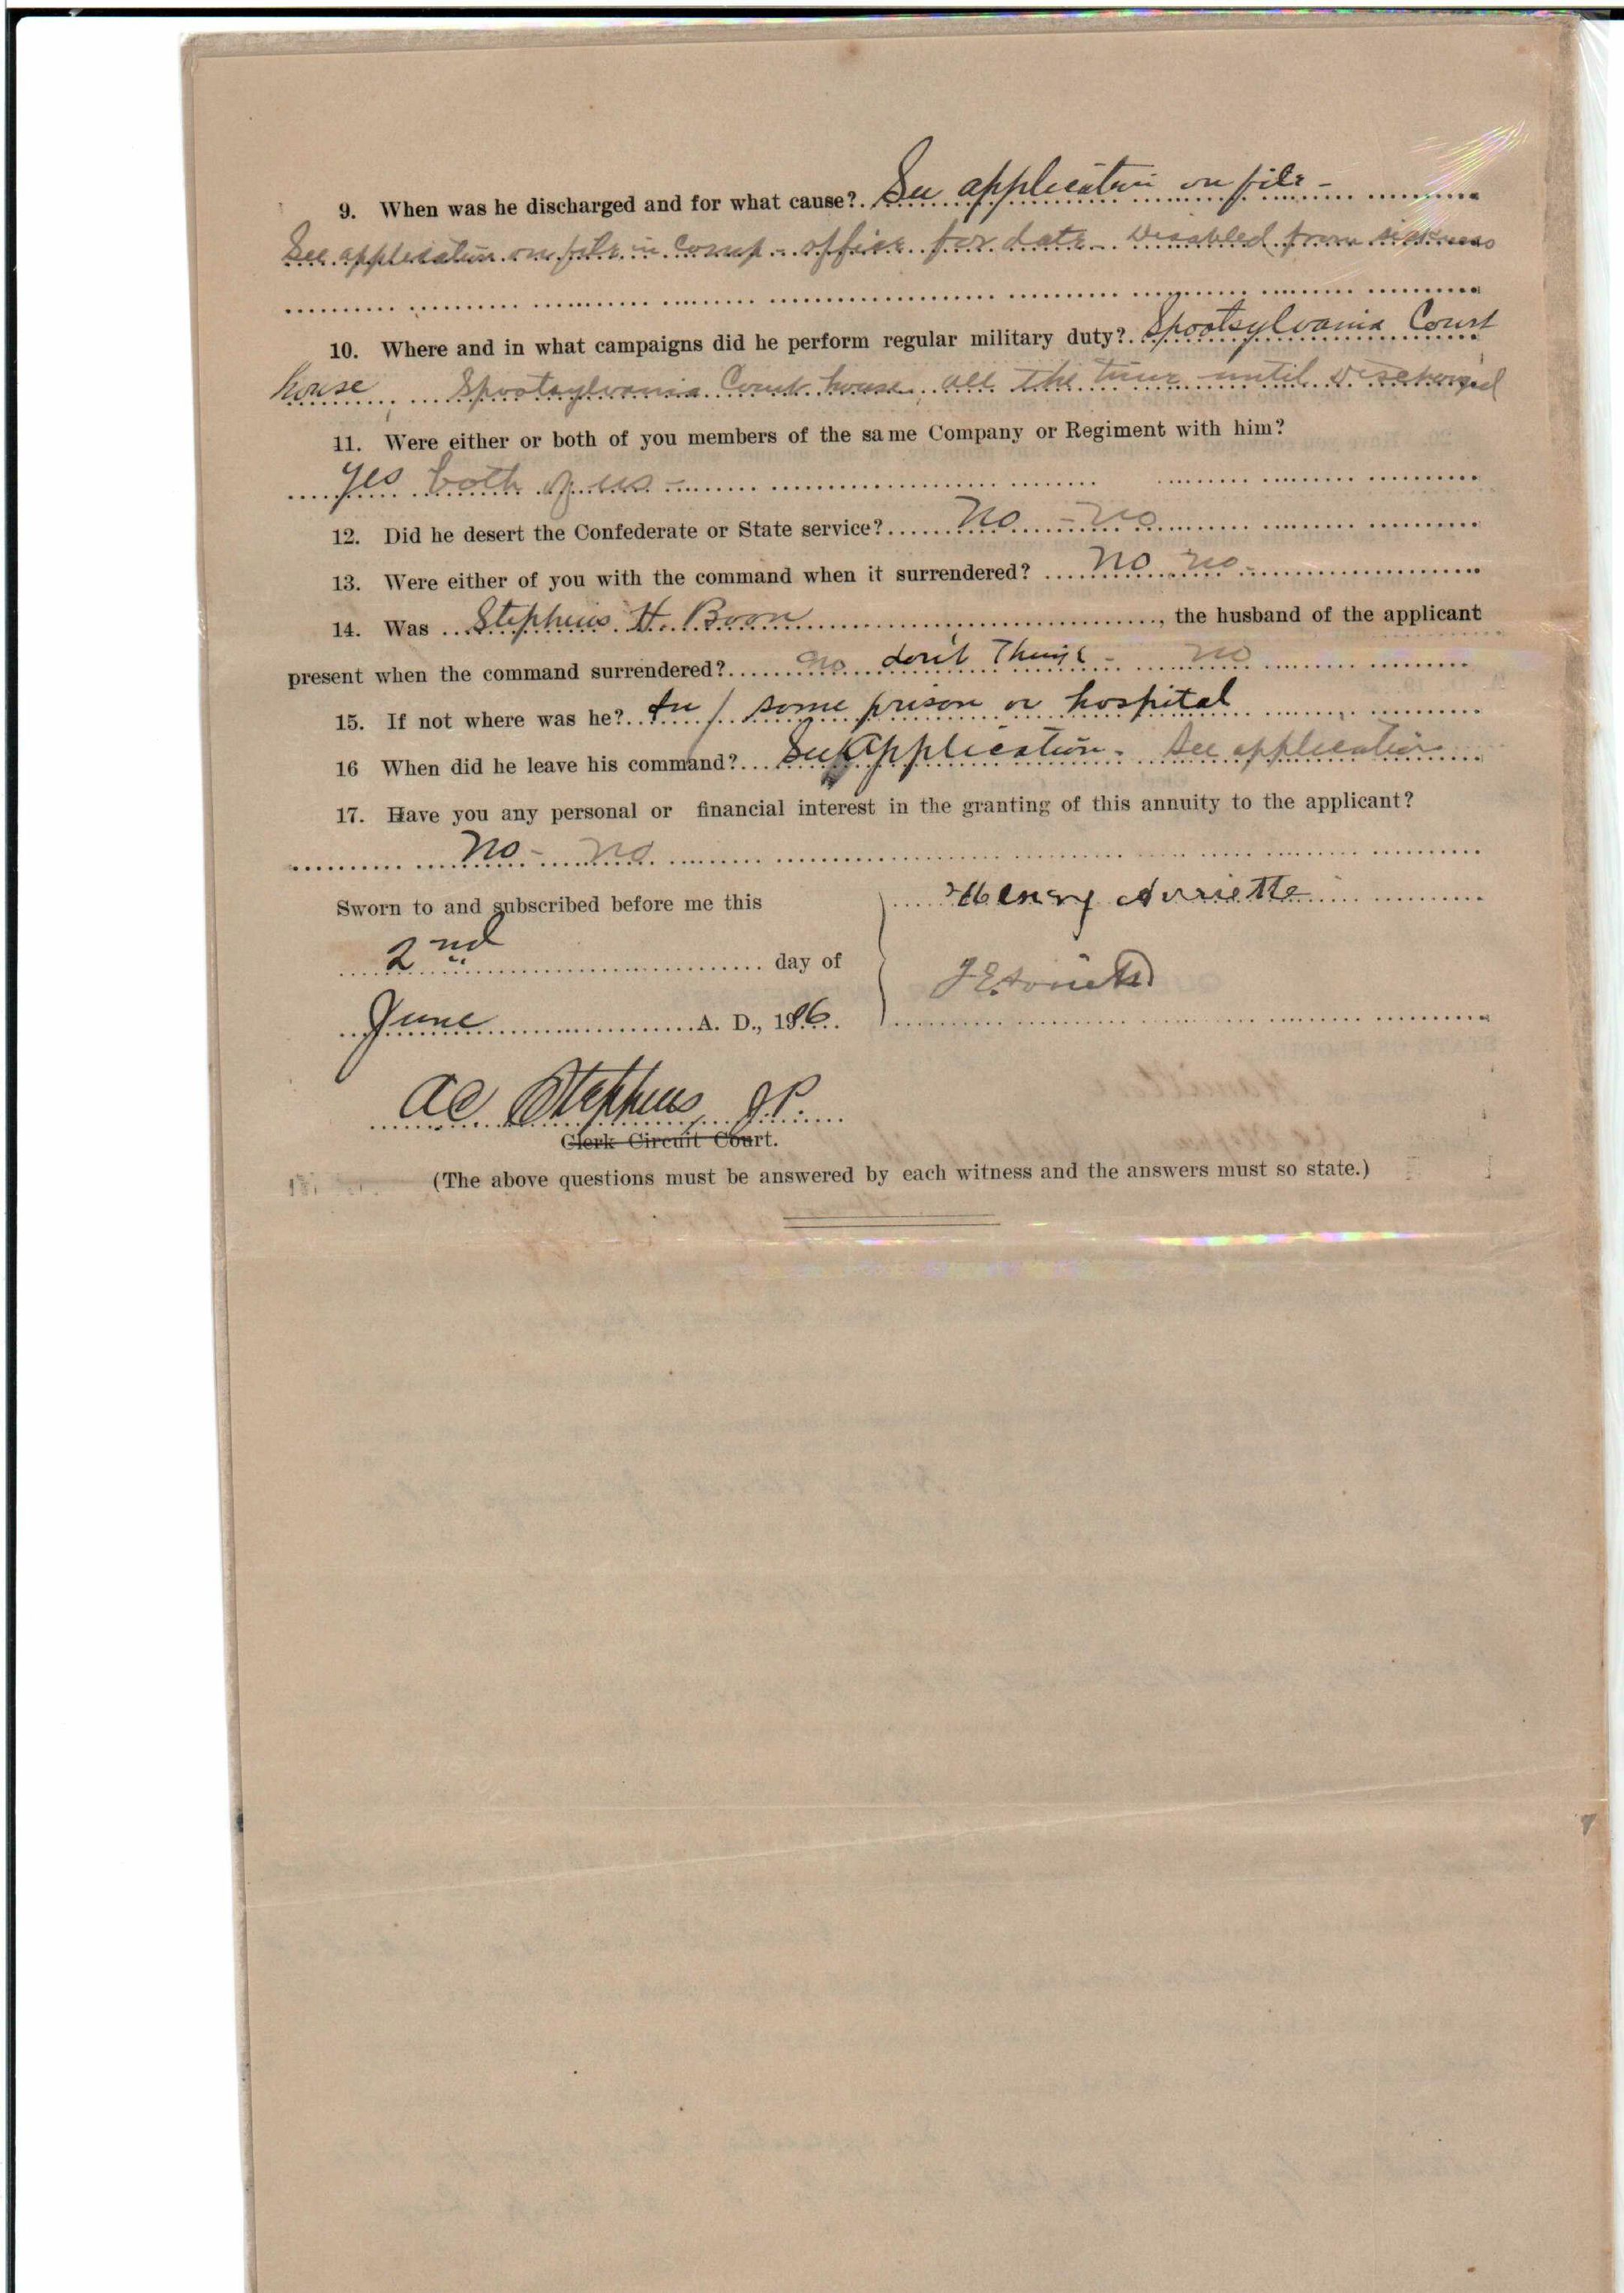 9. When was he discharged and for what cause? See application on file -
See application on file in Comp - office for date - Disabled from sickness
10. Where and in what campaigns did he perform regular military duty? Spootsylvania Court
house , Spootsylvania Court house all the time until Discharged
11. Were either or both of you members of the same Company or Regiment with him?
Yes both of us -
12. Did he desert the Confederate or State service? No - no
13. Were either of you with the command when it surrendered? No no -
14. Was Stephens H. Boon , the husband of the applicant
present when the command surrendered? no don't Think - no
15. If not where was he? In some prison or hospital
16 When did he leave his command? See Application - See application
17. Have you any personal or financial interest in the granting of this annuity to the applicant?
No - no
Sworn to and subscribed before me this
2nd day of
June A. D., 1906.
Henry Avriette
J E
AC Stephens J.P.
Clerk Circuit Court.
(The above questions must be answered by each witness and the answers must so state.)